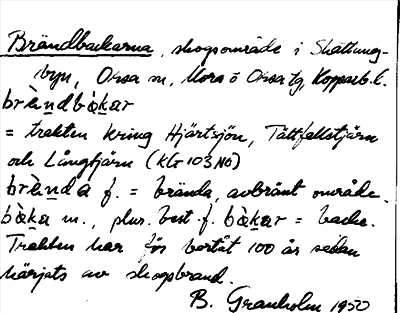 Brändbackarna, skogsområde i Skattungs-
byn, Orsa sn, Mora o Orsa tg, Kopparb. l.
brä̀ndbàkar
= trakten kring Hjärtsjön, Tättfallstjärn
och Långtjärn (KG 103 NO)
brä̀nda f. = brända, avbränt område.
bàka m., plur. best. f. bàkar = backe.
Trakten har för bortåt 100 år sedan
härjats av skogsbrand.
B. Granholm 1950